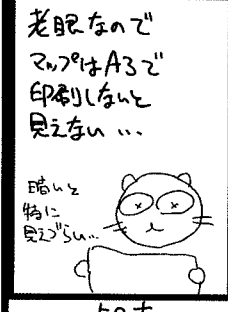 老眼なので
マップはA3で
印刷しないと
見えない…
暗いと
特に
見えづらい…